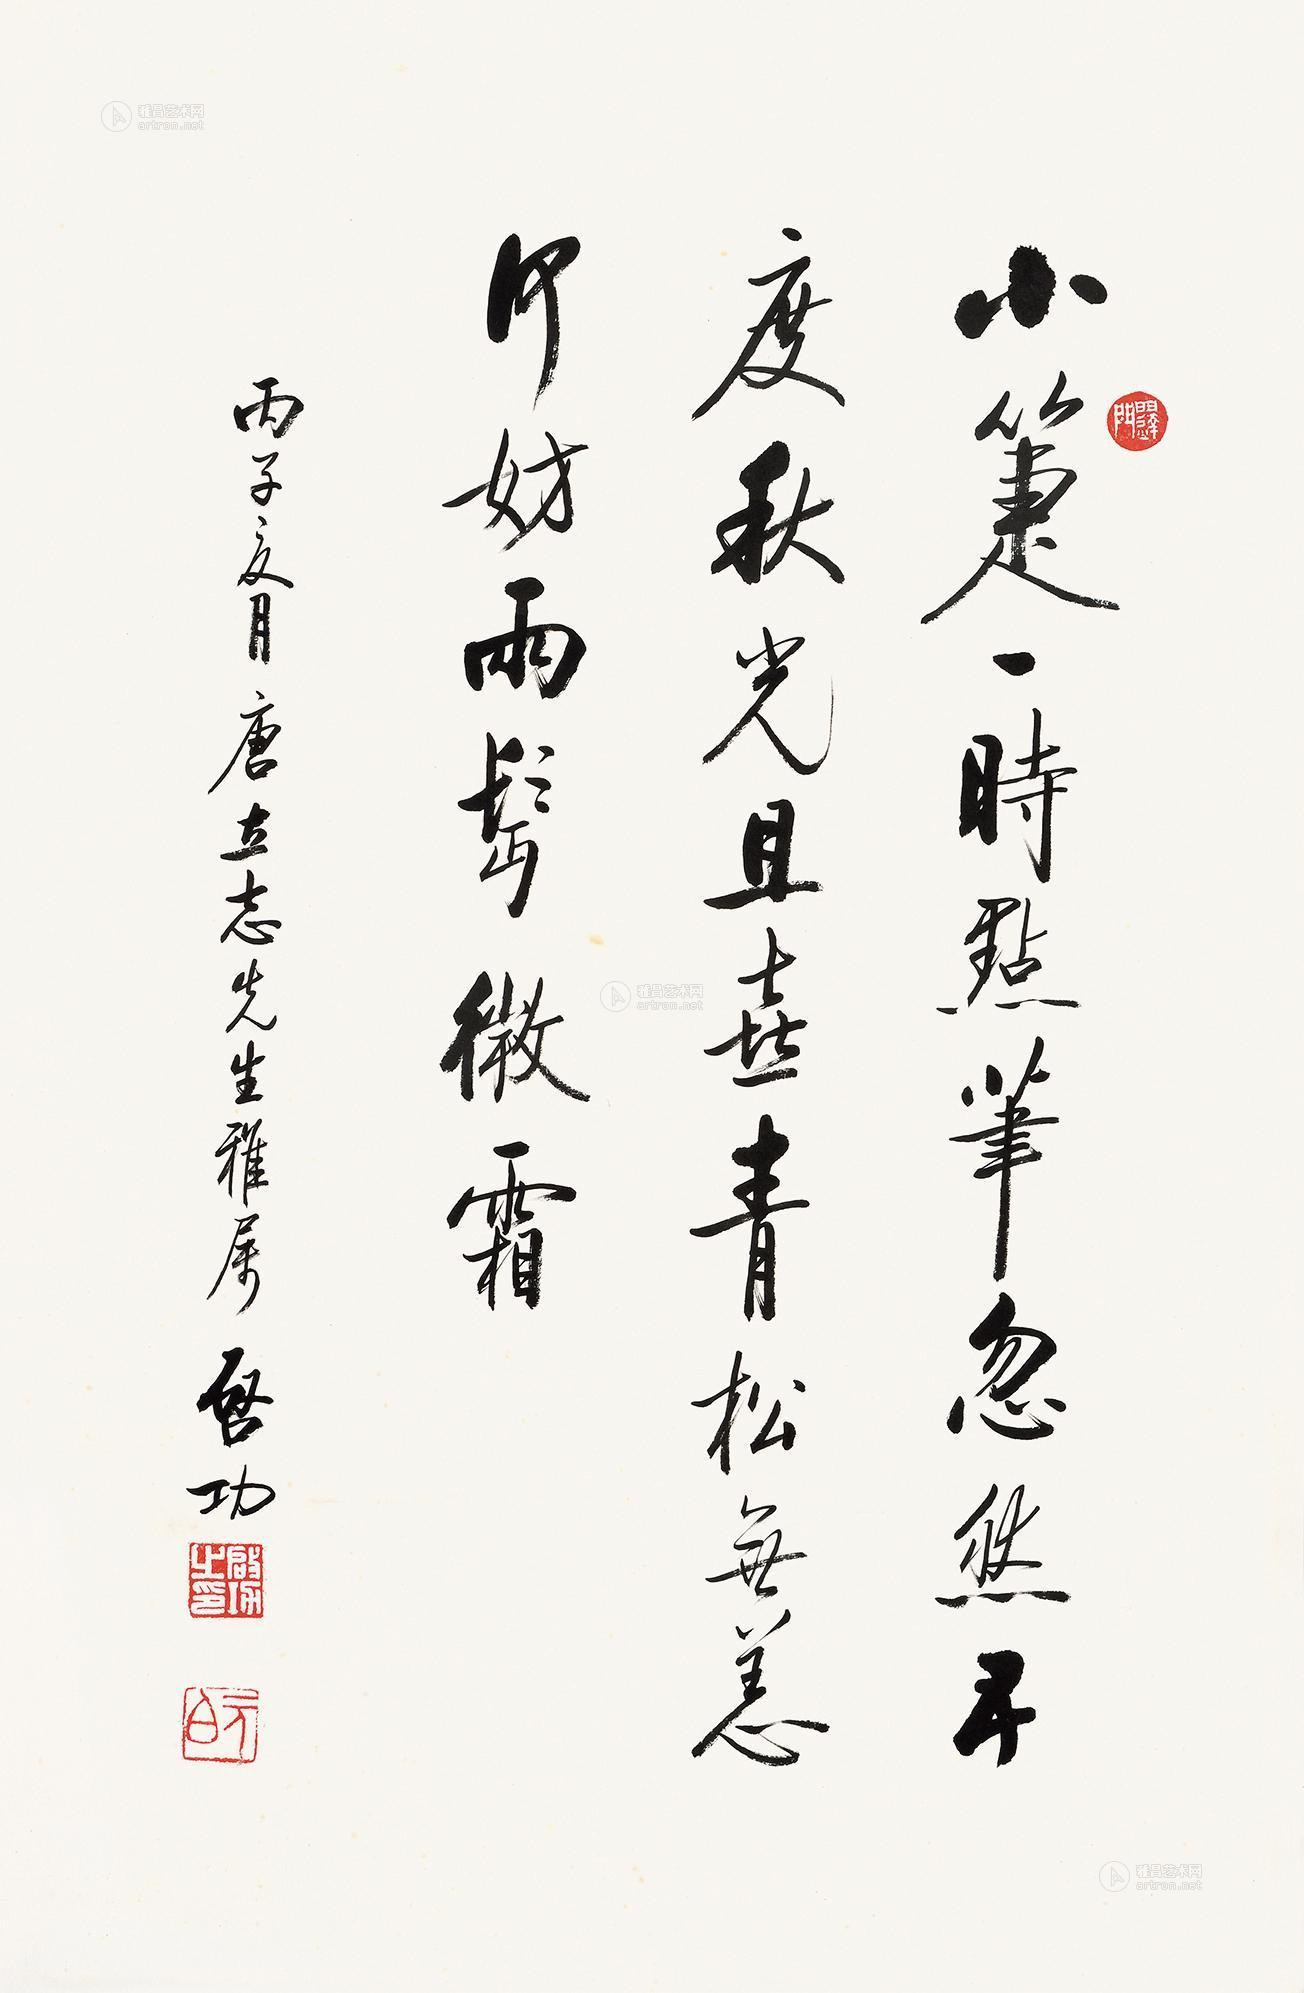 小箑一時點筆忽然再
度秋光且喜青松無恙
何妨兩鬢微霜
丙子夏月唐立志先生雅属 启功
啟功之印
元白
雅昌艺术网
artron.net
雅昌艺术网
artron.net
雅昌艺术网
artron.net